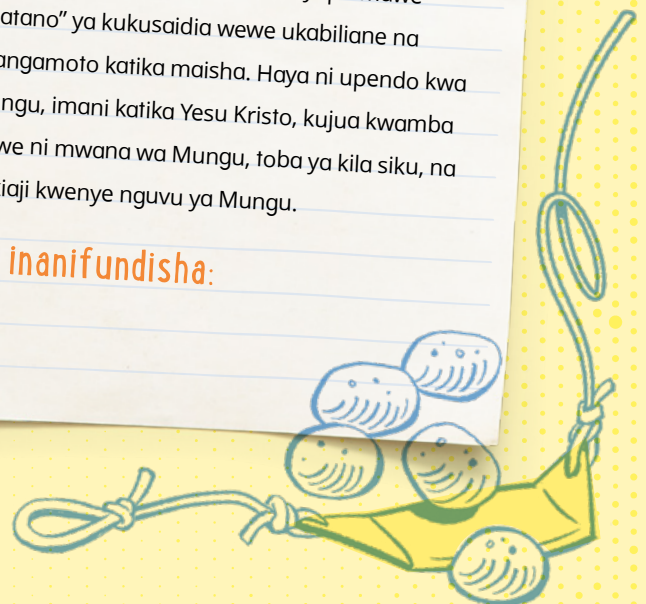 atano” ya kukusaidia wewe ukabiliane na
angamoto katika maisha. Haya ni upendo kwa
ngu, imani katika Yesu Kristo, kujua kwamba
we ni mwana wa Mungu, toba ya kila siku, na
iaji kwenye nguvu ya Mungu.
inanifundisha: